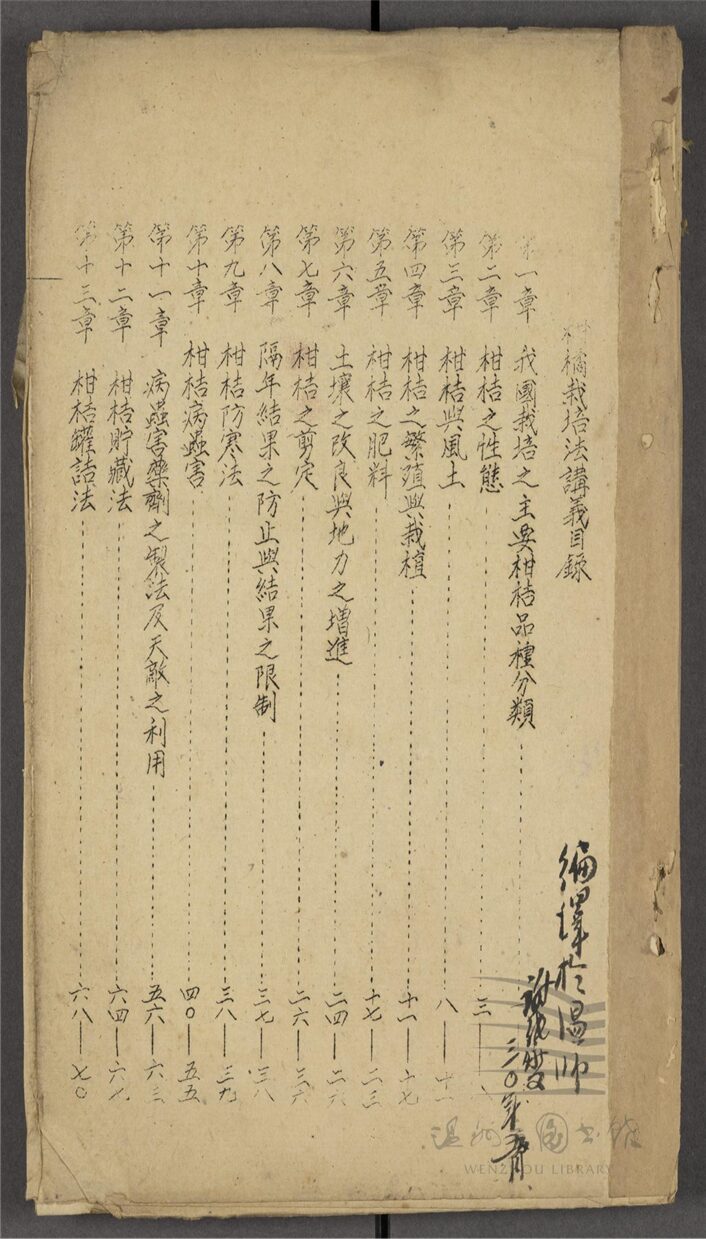 柑橘栽培法講義目錄
第一章 我國栽培之主要柑桔品種分類
第二章 柑桔之性態 三
第三章 柑桔與風土 八——十一
第四章 柑桔之繁殖與栽植 十一——十七
第五章 柑桔之肥料 十七——二三
第六章 土壤之改良與地力之增進 二四——二六
第七章 柑桔之剪定 二六——三六
第八章 隔年結果之防止與結果之限制 三七——三八
第九章 柑桔防寒法 三八——三九
第十章 柑桔病蟲害 四〇——五五
第十一章 病蟲害藥劑之製法及天敵之利用 五六——六三
第十二章 柑桔貯藏法 六四——六七
第十三章 柑桔罐詰法 六八——七〇
編譯於溫師
三〇年五月
溫州圖書館
WENZHOU LIBRARY